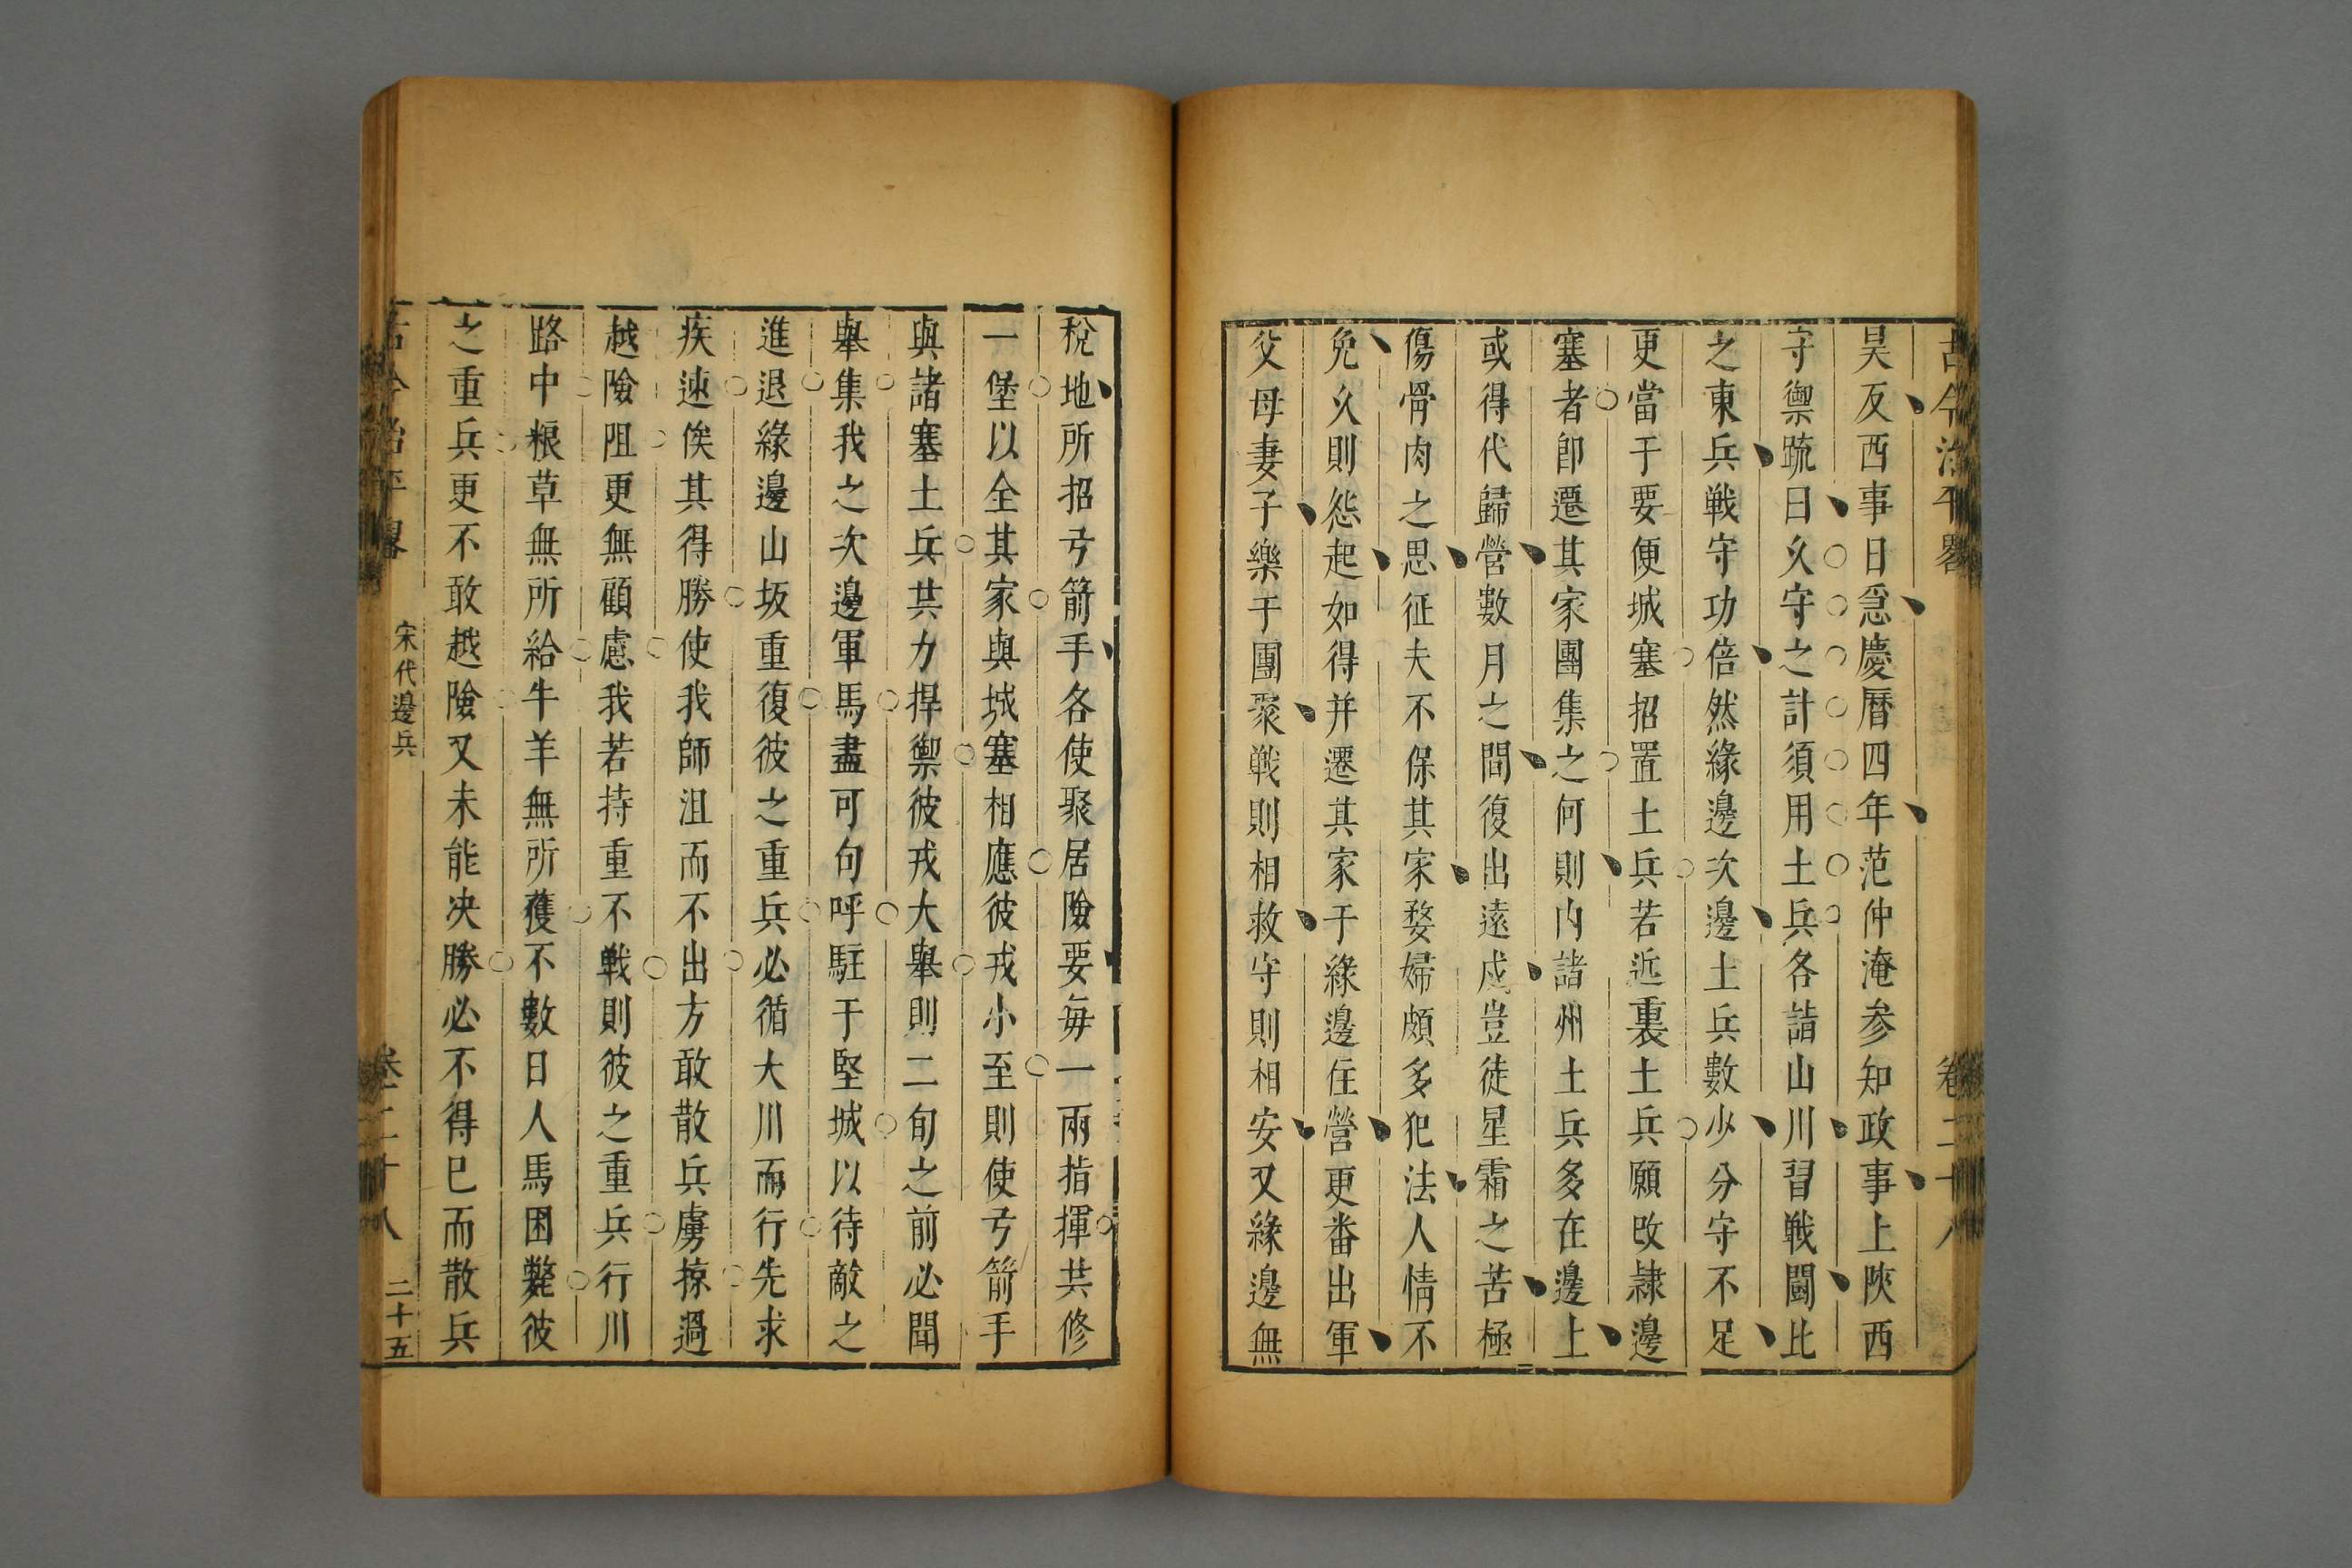 古今治平畧
卷二十八
昊反西事日急慶曆四年范仲淹参知政事上陝西
守禦䟽曰久守之計須用土兵各諳山川習戦鬬比
之東兵戦守功倍然緣邊次邊土兵數少分守不足
更當于要便城塞招置土兵若近裏土兵願改隷邊
塞者卽遷其家團集之何則内諸州土兵多在邊上
或得代歸營數月之間復出遠戍豈徒星霜之苦極
傷骨肉之思征夫不保其家婺婦頗多犯法人情不
免久則怨起如得并遷其家于緣邊住營更畨出軍
父母妻子樂于團聚戦則相救守則相安又緣邊無
稅地所招弓箭手各使聚居險要毎一兩指揮共修
一堡以全其家與城塞相應彼戎小至則使弓箭手
與諸塞土兵共力捍禦彼戎大舉則二旬之前必聞
舉集我之次邊軍馬盡可勾呼駐于堅城以待敵之
進退緣邊山坂重復彼之重兵必循大川而行先求
疾速俟其得勝使我師沮而不出方敢散兵虜掠過
越險阻更無顧慮我若持重不戦則彼之重兵行川
路中粮草無所給牛羊無所獲不數日人馬困斃彼
之重兵更不敢越險又未能决勝必不得已而散兵
古今治平畧
宋代邊兵
卷二十八
二十五